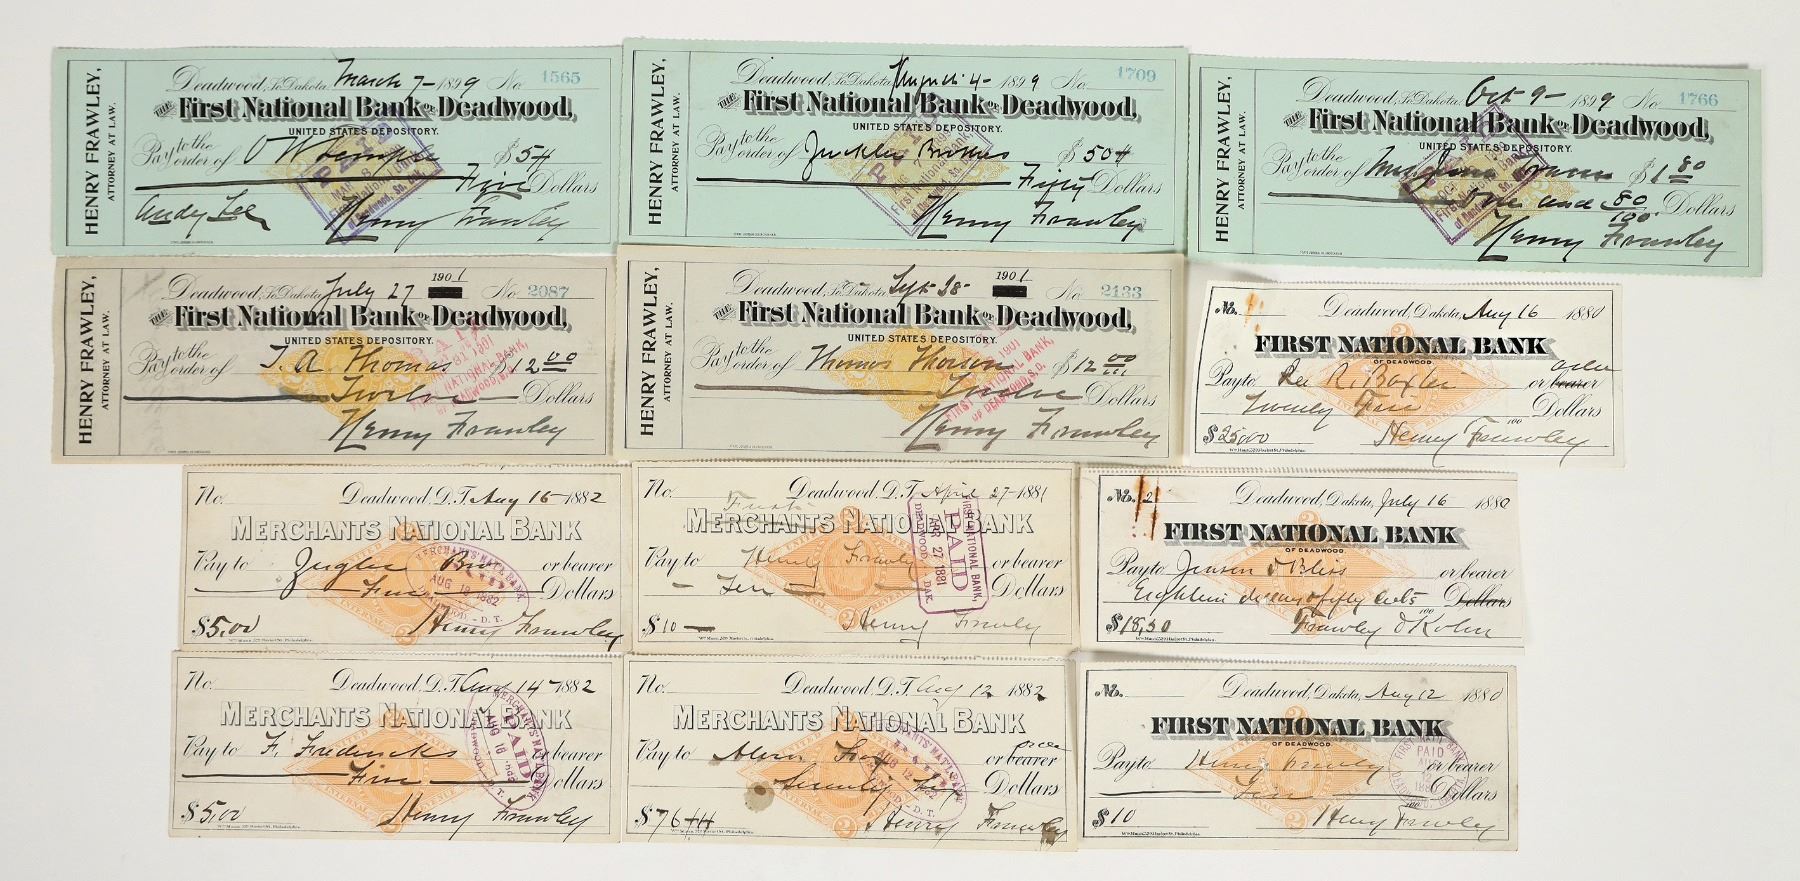 HENRY FRAWLEY,
ATTORNEY AT LAW.
Deadwood, So Dakota, March 7- 1899 No. 1565
THE First National Bank OF Deadwood,
UNITED STATES DEPOSITORY.
Pay to the order of $5
Five Dollars
Andy Lee Henry Frawley
HENRY FRAWLEY,
ATTORNEY AT LAW.
Deadwood, So Dakota, August 4- 1899 No. 1709
THE First National Bank OF Deadwood,
UNITED STATES DEPOSITORY.
Pay to the order of $50
Fifty Dollars
Henry Frawley
HENRY FRAWLEY,
ATTORNEY AT LAW.
Deadwood, So Dakota, Oct 9- 1899 No. 1766
THE First National Bank OF Deadwood,
UNITED STATES DEPOSITORY.
Pay to the order of $1 80
One and 80/100 Dollars
Henry Frawley
HENRY FRAWLEY,
ATTORNEY AT LAW.
1901
Deadwood, So Dakota, July 27 No. 2087
THE First National Bank OF Deadwood,
UNITED STATES DEPOSITORY.
Pay to the order of T. A. Thomas $12 00
Twelve Dollars
Henry Frawley
HENRY FRAWLEY,
ATTORNEY AT LAW.
1901
Deadwood, So Dakota, Sept 28- No. 2133
THE First National Bank OF Deadwood,
UNITED STATES DEPOSITORY.
Pay to the order of Thomas Thorson $12 00
Twelve Dollars
FIRST NATIONAL BANK,
OF DEADWOOD, S.D.
Henry Frawley
No. Deadwood, Dakota, Aug 16 1880
FIRST NATIONAL BANK
OF DEADWOOD.
Pay to R. Baxter or bearer order
Twenty Five Dollars
$25.00 100 Henry Frawley
No. Deadwood, D.T. Aug 16- 1882
MERCHANTS NATIONAL BANK
Pay to Bro or bearer
Five Dollars
$5.00 Henry Frawley
MERCHANTS' NAT'L BANK,
AUG 18 1882
No. Deadwood, D.T. April 27- 1881
First
MERCHANTS NATIONAL BANK
Pay to Henry Frawley or bearer
Ten Dollars
$10 Henry Frawley
FIRST NATIONAL BANK,
PAID
APR 27 1881
DEADWOOD - DAK.
No. 2 Deadwood, Dakota, July 16 1880
FIRST NATIONAL BANK
OF DEADWOOD.
Pay to Jensen & Bliss or bearer
Eighteen dollars & fifty cents Dollars
$18.50 100 Frawley & Kohn
No. Deadwood, D.T. Aug 14- 1882
MERCHANTS NATIONAL BANK
Pay to F. Fredericks or bearer
Five Dollars
$5.00 Henry Frawley
MERCHANTS' NAT'L BANK
PAID
AUG 16 1882
DEADWOOD - D.T.
No. Deadwood, D.T. Aug 12 1882
MERCHANTS NATIONAL BANK
Pay to or bearer order
Seventy Dollars
$76 Henry Frawley
MERCHANTS' NAT'L BANK,
AUG 12 1882
No. Deadwood, Dakota, Aug 12 1880
FIRST NATIONAL BANK
OF DEADWOOD.
Pay to Henry Frawley or bearer
Ten Dollars
$10 100 Henry Frawley
FIRST NAT'L BANK
PAID